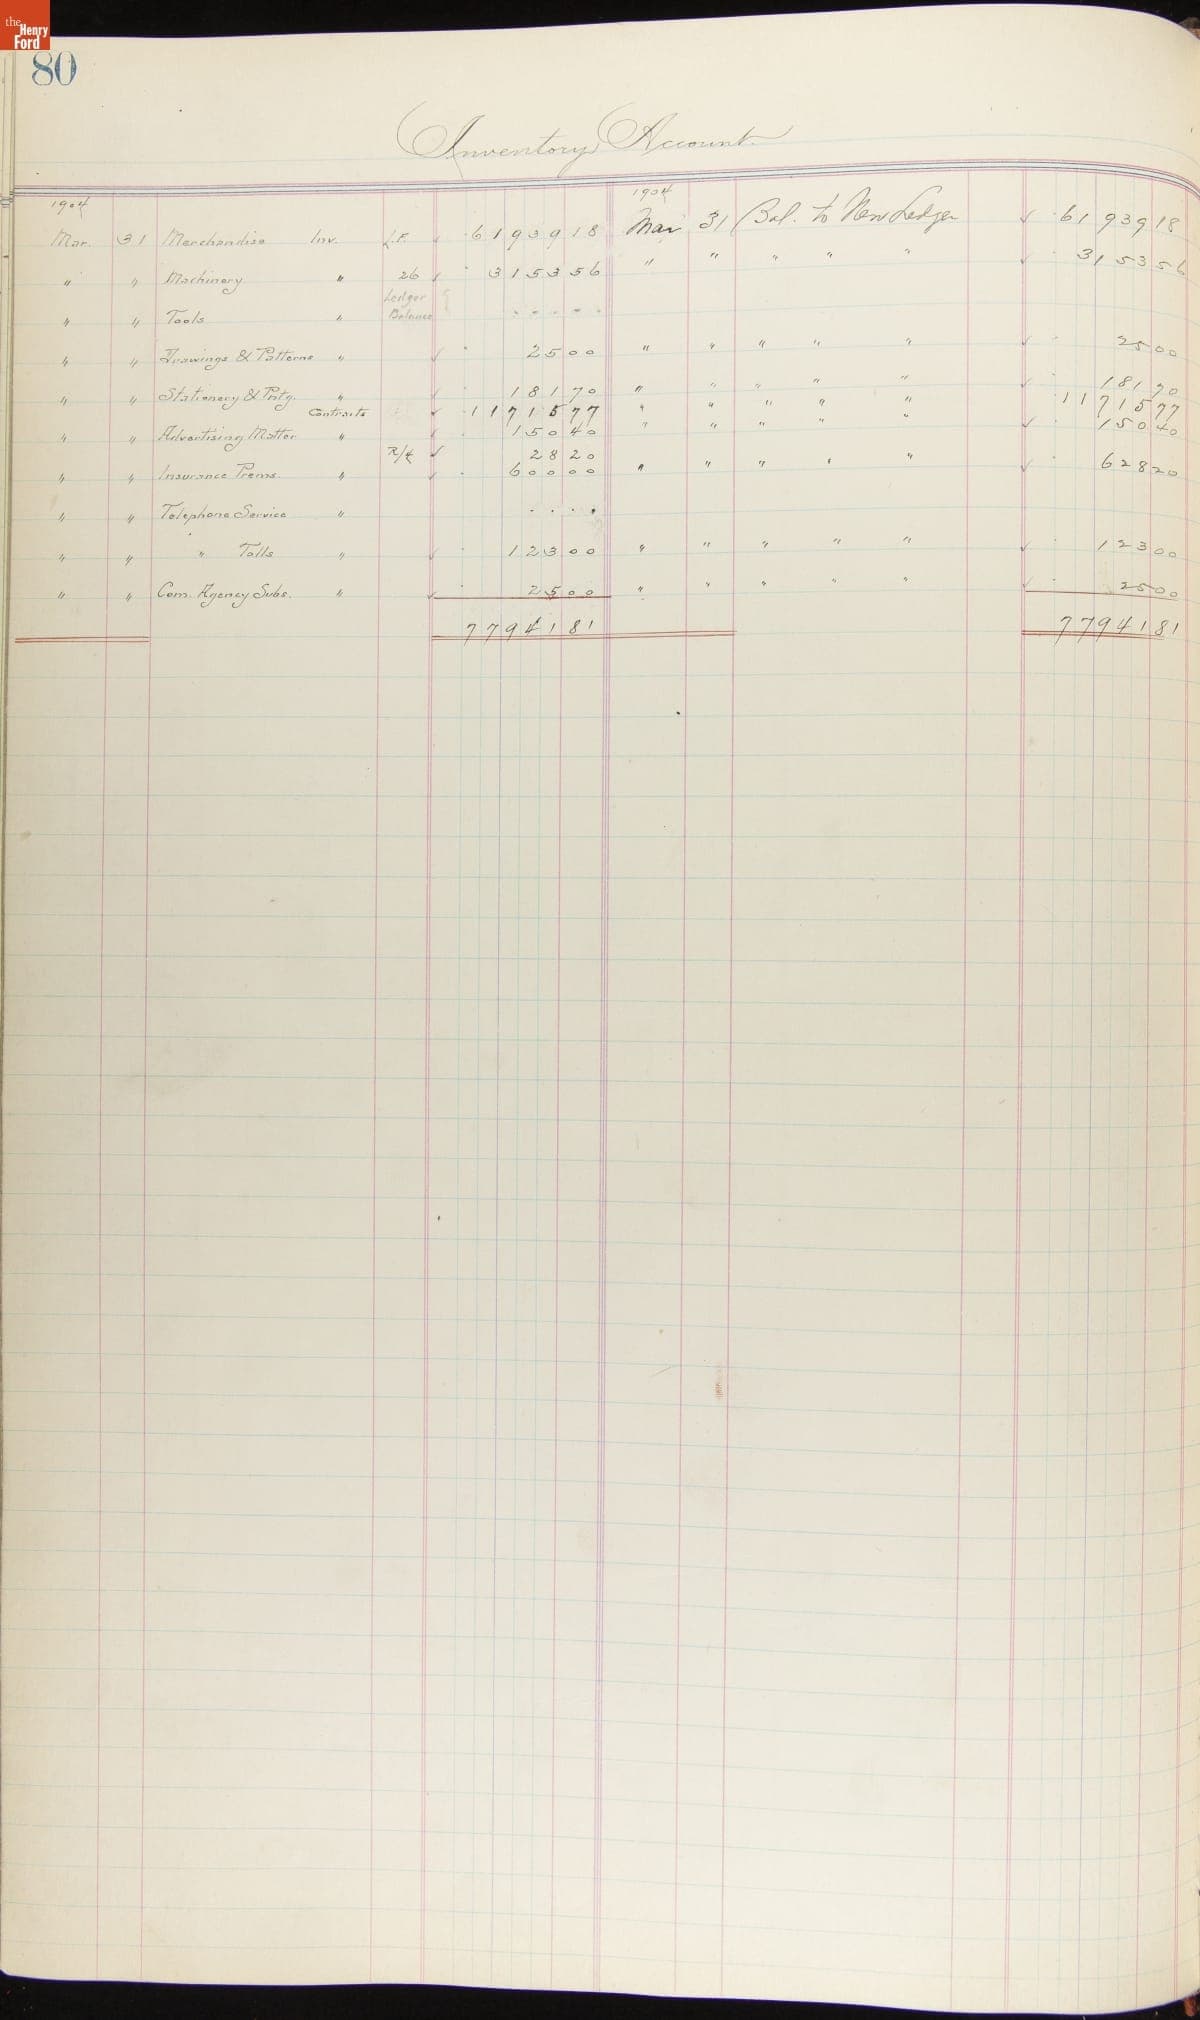 the Henry Ford
80
Inventory Account
1904 1904
Mar. 31 Merchandise Inv. L.F. ✓ 61939 18 Mar 31 Bal. to New Ledger ✓ 61939 18
" " Machinery " 26 ✓ 3153 56 " " " " " ✓ 3153 56
" " Tools " Ledger Balance - - - - -
" " Drawings & Patterns " ✓ 25 00 " " " " " ✓ 25 00
" " Stationery & Pntg. " ✓ 181 70 " " " " " ✓ 181 70
Contracts ✓ 11715 77 " " " " " 11715 77
" " Advertising Matter " ✓ 150 40 " " " " " ✓ 150 40
R/£ ✓ 28 20
" " Insurance Prems. " ✓ 600 00 " " " " " ✓ 628 20
" " Telephone Service " . . . .
" " " Tolls " ✓ 123 00 " " " " " ✓ 123 00
" " Com. Agency Subs. " ✓ 25 00 " " " " " ✓ 25 00
77941 81 77941 81